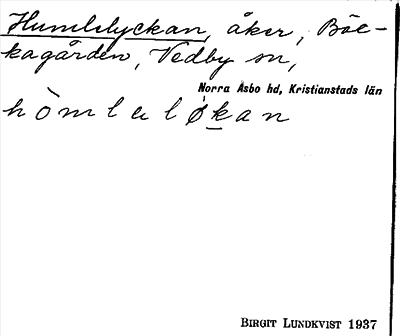 Humlelyckan, åker, Böc-
kagården, Vedby sn,
Norra Åsbo hd, Kristianstads län
hòmlaløkan
BIRGIT LUNDKVIST 1937